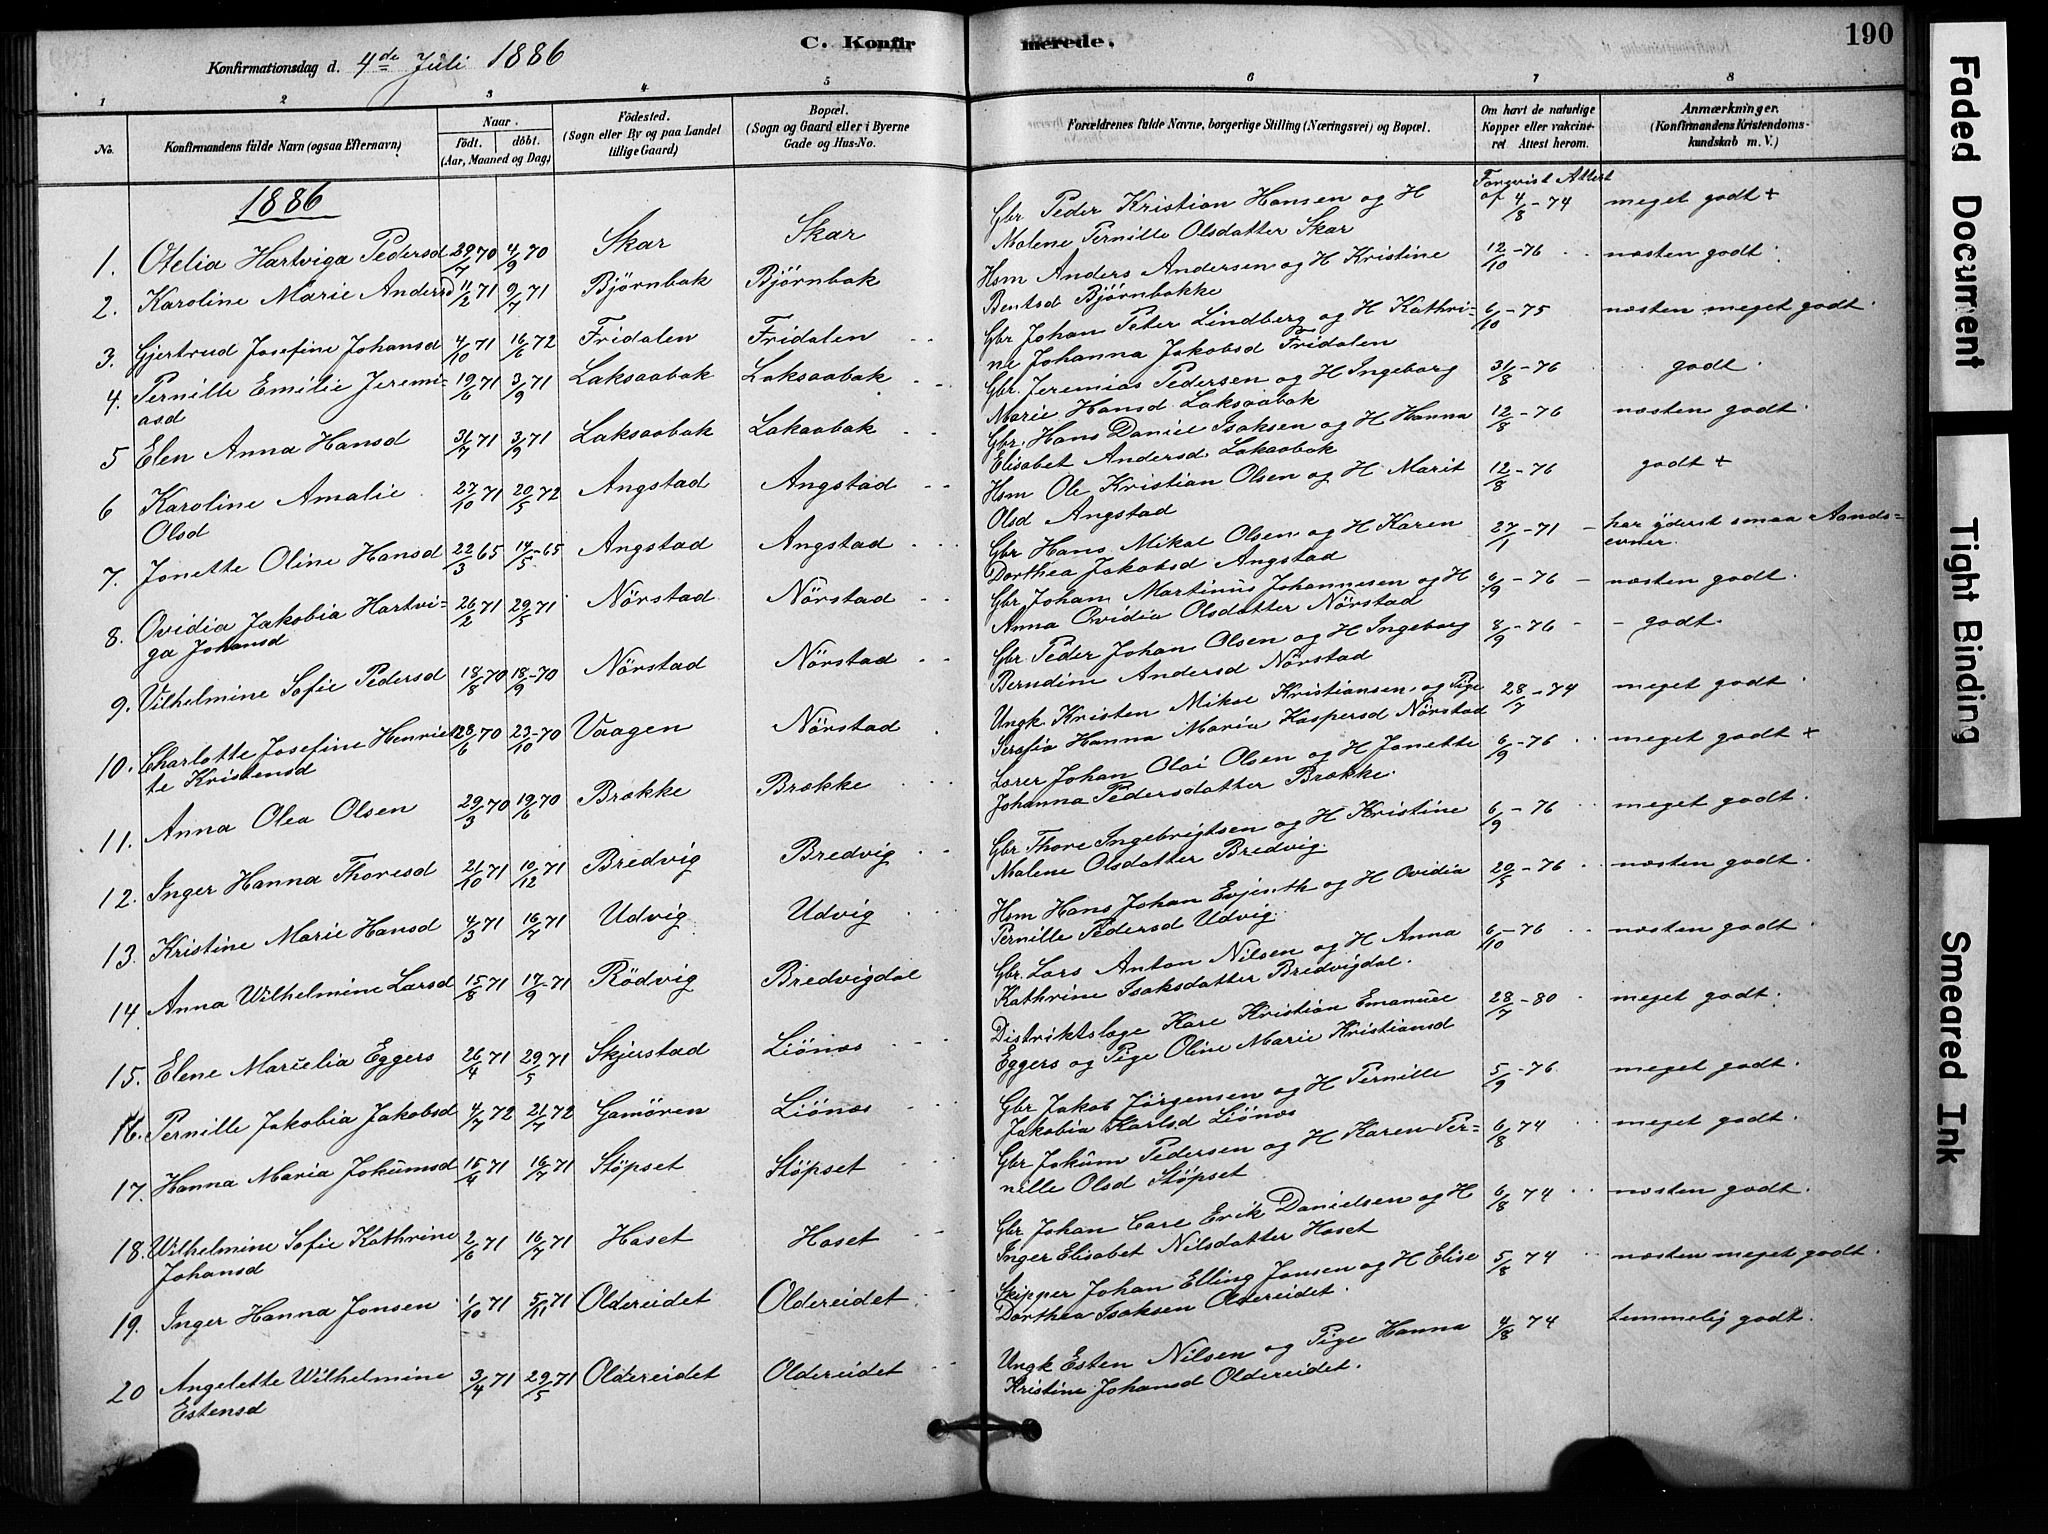 C. Konfirmerede. 190
Konfirmationsdag d. 4de Juli 1886
1 2 3 4 5 6 7 8
No. Konfirmandens fulde Navn (ogsaa Efternavn) Naar født. døbt. (Aar, Maaned og Dag) Fødested. (Sogn eller By og paa Landet tillige Gaard) Bopæl. (Sogn og Gaard eller i Byerne Gade og Hus-No. Forældrenes fulde Navne, borgerlige Stilling (Næringsvei) og Bopæl. Om havt de naturlige Kopper eller vakcineret Attest herom. Anmærkninger. (Konfirmandens Kristendomskundskab m. V.)
1886
1. Otelia Hartviga Pedersd 29/7 70 4/9 70 Skar Skar Gbr Peder Kristian Hansen og H Attest af 4/8 - 74 meget godt +
Malene Pernille Olsdatter Skar
2. Karoline Marie Andersd 11/2 71 9/7 71 Bjørnbak Bjørnbak Hsm Anders Andersen og H Kristine 12/10 - 76 næsten godt.
Bentsd Bjørnbakke
3. Gjertrud Josefine Johansd 4/10 71 16/6 72 Fridalen Fridalen Gbr Johan Peter Lindberg og H Kathri- 6/10 - 75 næsten meget godt.
ne Johanna Jakobsd Fridalen
4. Pernille Emilie Jeremi- 19/6 71 3/9 71 Laksaabak Laksaabak Gbr. Jeremias Pedersen og H Ingeborg 31/8 - 76 godt.
asd Marie Hansd. Laksaabak
5 Elen Anna Hansd 31/7 71 3/9 71 Laksaabak Laksaabak Gbr. Hans Daniel Isaksen og H Hanna 12/8 - 76 næsten godt.
Elisabet Andersd. Laksaabak
6 Karoline Amalie 27/10 71 20/5 72 Angstad Angstad Hsm Ole Kristian Olsen og H. Marit 12/8 - 76 godt +
Olsd Olsd Angstad
7. Jonette Oline Hansd 22/3 65 14/5 - 65 Angstad Angstad Gbr Hans Mikal Olsen og H Karen 27/1 - 71 - har yderst smaa Aands=
Dorthea Jakobsd Angstad evner.
8. Ovidia Jakobia Hartvi- 26/2 71 29/5 71 Nørstad Nørstad Gbr Johan Martinus Johannesen og H 6/9 - 76 - næsten godt.
ga Johansd Anna Ovidia Olsdatter Nørstad
9. Vilhelmine Sofie Pedersd 18/8 70 18/9 - 70 Nørstad Nørstad Gbr. Peder Johan Olsen og H Ingeborg 8/9 - 76 - godt.
Berndine Andersd Nørstad
10. Charlotte Josefine Henriet- 28/6 70 23/10 - 70 Vaagen Nørstad Ungk. Kristen Mikal Kristiansen og Pige 28/7 - 74 meget godt.
te Kristensd Serafia Hanna Maria Kaspersd Nørstad
11. Anna Olea Olsen 29/3 70 19/6 70 Brække Brække Lærer Johan Olai Olsen og H Jonette 6/9 - 76 meget godt +
Johanna Pedersdatter Brække.
12. Inger Hanna Thoresd 21/10 71 10/12 71 Bredvig Bredvig Gbr Thore Ingebrigtsen og H Kristine 6/9 - 76 meget godt.
Malene Olsdatter Bredvig.
13. Kristine Marie Hansd 4/3 71 16/7 71 Udvig Udvig Hsm Hans Johan Evjenth og H Ovidia 20/5 - 76 næsten godt.
Pernille Pedersd Udvig.
14 Anna Wilhelmine Larsd 15/8 71 17/9 - 71 Rødvig Bredvigdal Gbr. Lars Anton Nilsen og H Anna 6/10 - 76 næsten godt.
Kathrine Isaksdatter Bredvigdal.
15. Elene Marielia Eggers 26/4 71 29/5 71 Skjerstad Liønæs Distriktslæge Karl Kristian Emanuel 28/7 - 80 meget godt.
Eggers og Pige Oline Marie Kristiansd
16. Pernille Jakobia Jakobsd 4/7 72 21/7 72 Gamøren Liønæs Gbr Jakob Jørgensen og H Pernille 5/9 - 76 meget godt.
Jakobia Karlsd Liønæs
17. Hanna Maria Jokumsd 15/4 71 16/7 71 Støpset Støpset Gbr Jokum Pedersen og H Karen Per= 6/8 74 meget godt.
nille Olsd Støpset
18. Wilhelmine Sofie Kathrine 2/6 71 16/7 71 Haset Haset Gbr Johan Carl Erik Danielsen og H 6/8 74 næsten godt.
Johansd Inger Elisabet Nilsdatter Haset
19. Inger Hanna Jonsen 1/10 71 5/11 71 Oldereidet Oldereidet Skipper Johan Elling Jonsen og H Elise 5/8 74 næsten meget godt.
Dorthea Isaksen Oldereidet.
20 Angelette Wilhelmine 3/4 71 29/5 71 Oldereidet Oldereidet Ungk Esten Nilsen og Pige Hanna 4/8 74 temmelig godt.
Estensd Kristine Johansd Oldereidet.
Faded Document
Tight Binding
Smeared Ink